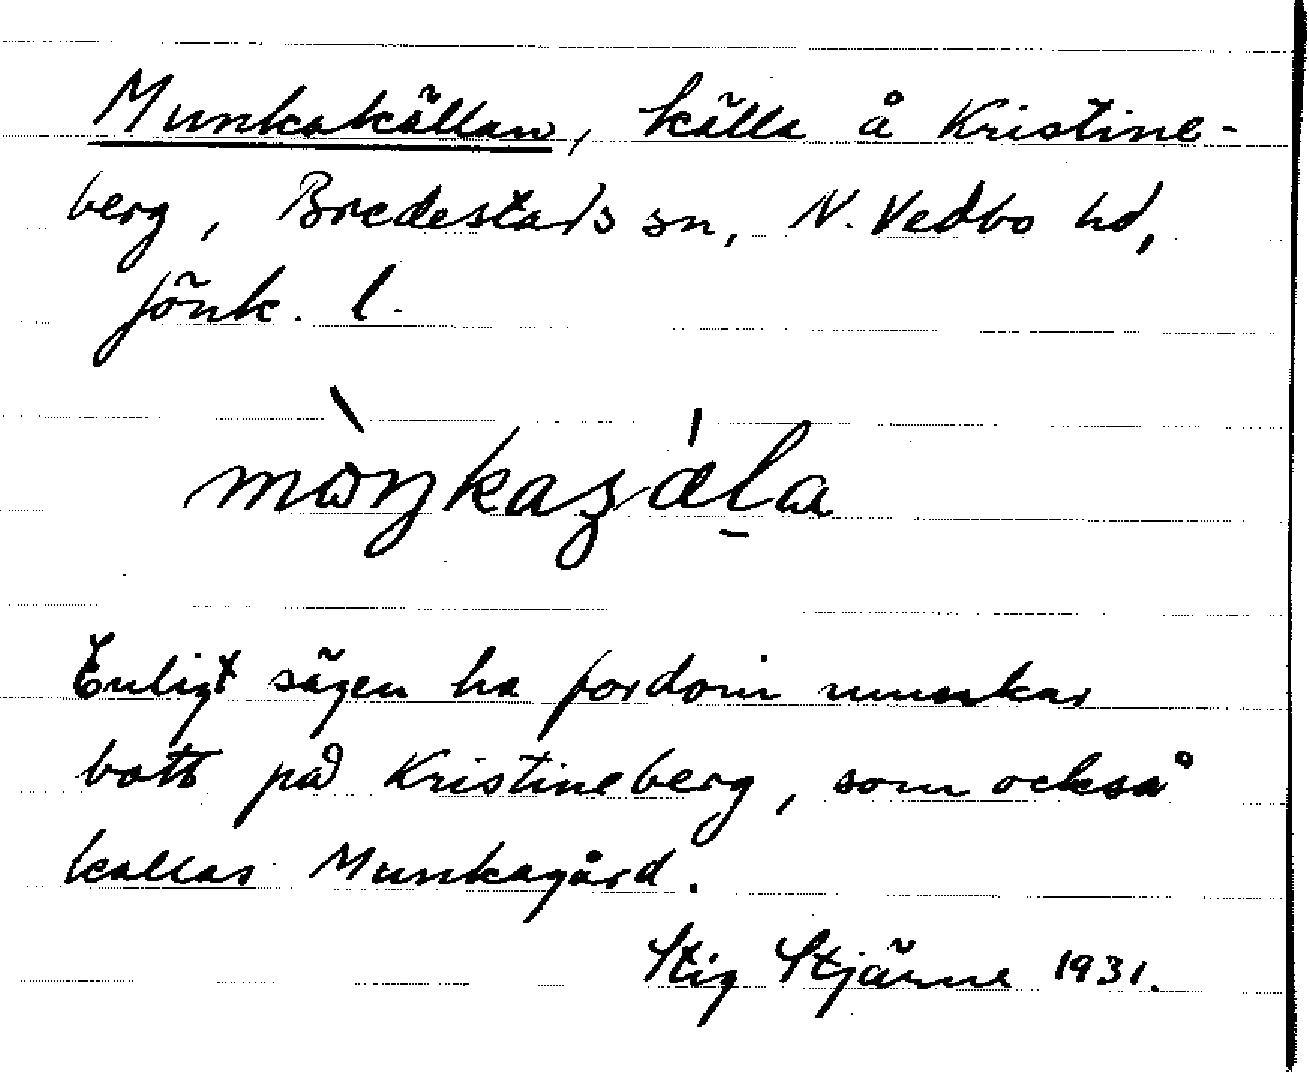 Munkakällan, källa å Kristine-
berg, Bredestads sn, N. Vedbo hd,
Jönk. l.
Enligt sägen ha fordom munkar
bott på Kristineberg, som också
kallas Munkagård.
Stig Stjärne 1931.